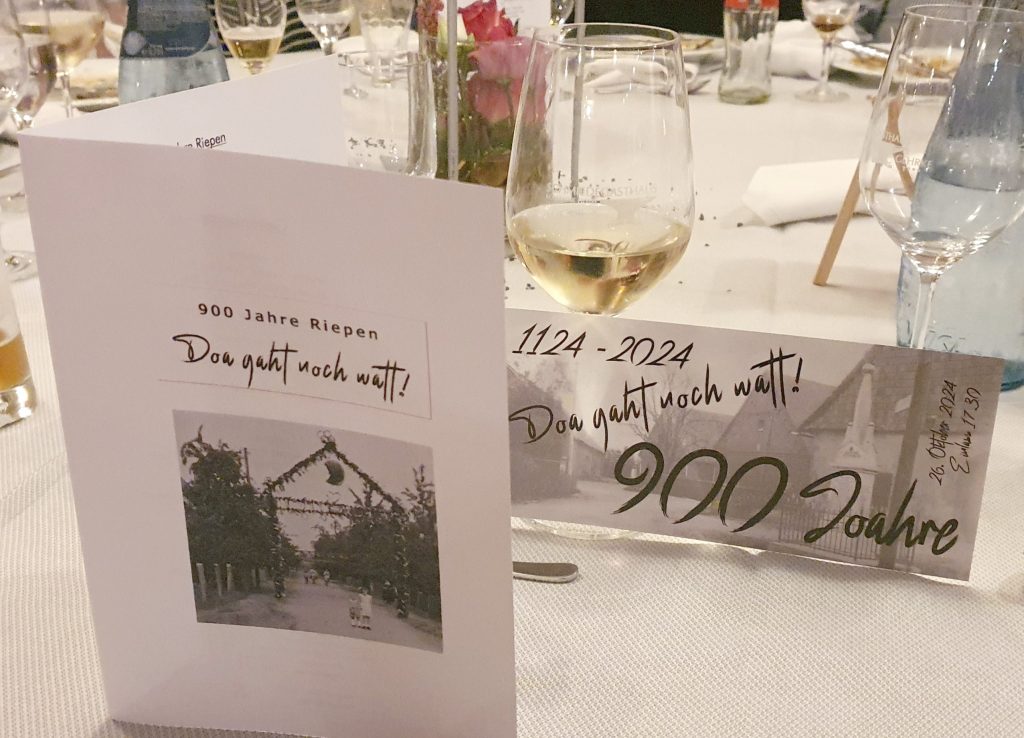 Riepen
900 Jahre Riepen
Doa gaht noch watt!
1124 - 2024
Doa gaht noch watt!
900 Joahre
26. Oktober 2024
Einlass 17.30